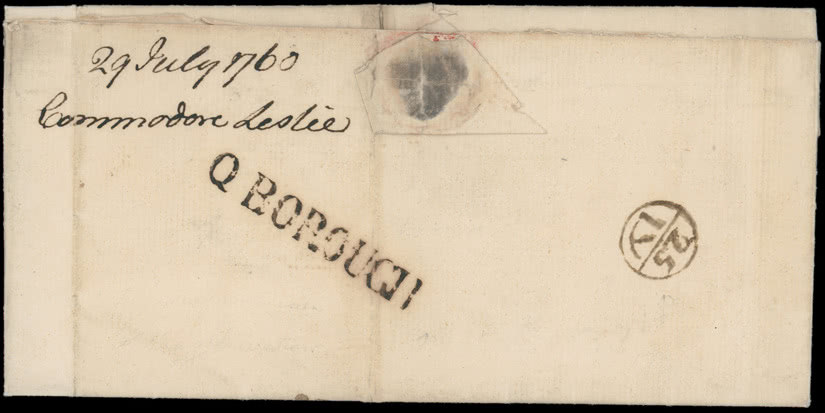 29 July 1760
Commodore Leslie
Q BOROUGH
25
IY